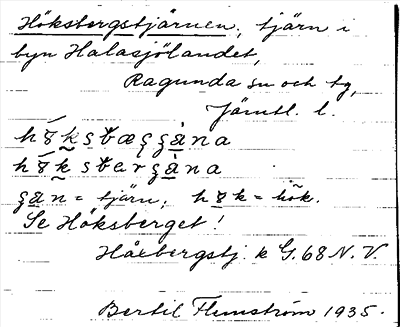 Höksbergstjärnen, tjärn i
byn Halasjölandet,
Ragunda sn och tg,
Jämtl. l.
gan = tjärn; = hök.
Se Höksberget!
Håxbergstj. k G. 68 N. V.
Bertil Flemström 1935.